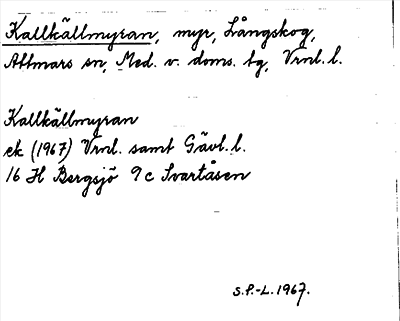 Kallkällmyran, myr, Långskog,
Attmars sn, Med. v. doms. tg, Vrnl. l.
Kallkällmyran
ek (1967) Vrnl. samt Gävl. l.
16 H Bergsjö 9c Svartåsen
S.P.-L. 1967.